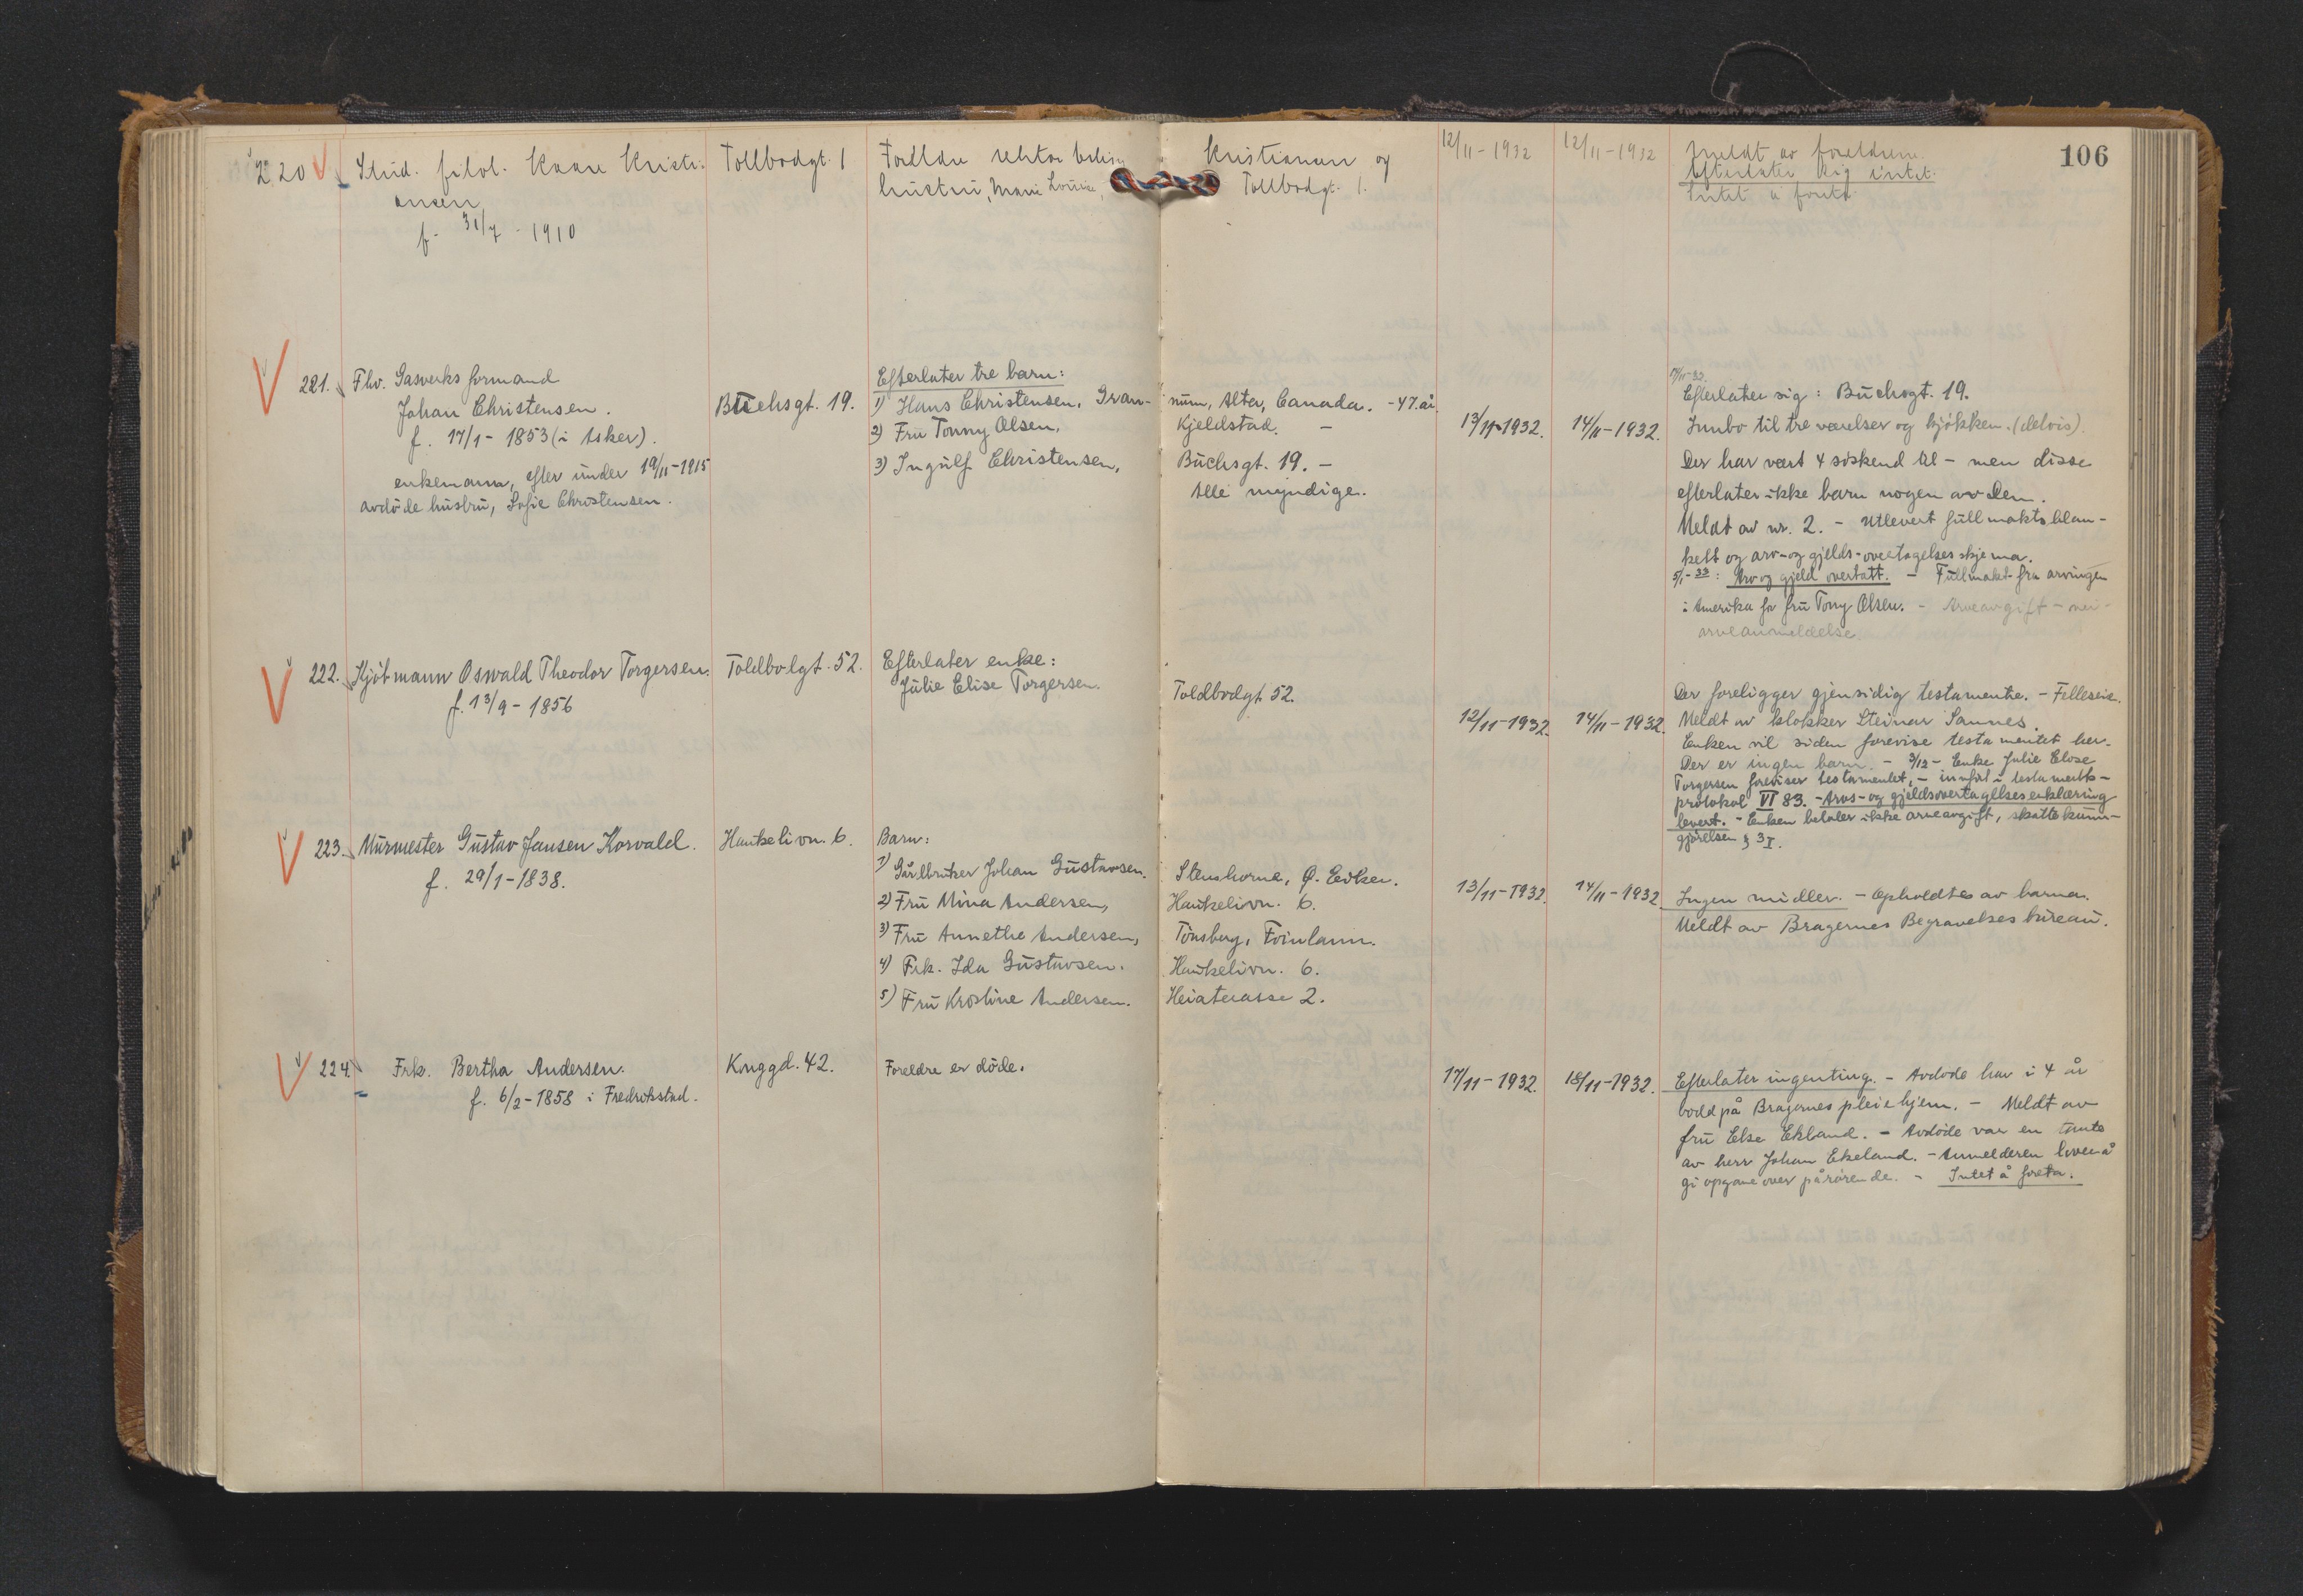 106
220
Stud. filol. Kaare Kristi-
ansen
f. 31/7 - 1910
Tollbodgt. 1
Foreldre rektor
hustru, Marie Louise,
Kristiansen og
Tollbodgt. 1.
12/11-1932
12/11-1932
Meldt av foreldrene.
Efterlater sig intet.
Intet å foreta
221.
Fhv. Gasverksformand
Johan Christensen.
f. 17/1 - 1853 (i Asker).
enkemann, efter under 19/11-1915
avdöde hustru, Sofie Christensen.
Buchsgt. 19.
Efterlater tre barn:
1) Hans Christensen, Gran-
2) Fru Tonny Olsen,
3) Ingulf Christensen,
num, Alta, Canada. - 47 år
Kjeldstad. -
Buchsgt. 19. -
Alle myndige.
13/11-1932.
14/11-1932.
17/11-32.
Efterlater sig: Buchsgt. 19.
Innbo til tre værelser og kjökken. (delvis).
Der har vært 4 söskend til - men disse
efterlater ikke barn nogen av dem.
Meldt av nr. 2. - Utlevert fullmaktsblan-
kett og arv- og gjelds-overtagelsesskjema.
5/1-33: Arv og gjeld overtatt. - Fullmakt fra arvingen
i Amerika for fru Tonny Olsen. - Arveavgift - nei -
arveanmeldelse.
222.
Kjötmann Oswald Theodor Torgersen.
f. 13/9 - 1856
Toldbodgt. 52.
Efterlater enke:
Julie Elise Torgersen.
Toldbodgt. 52.
12/11-1932.
14/11-1932.
Der foreligger gjensidig testamente. - Felleseie.
Meldt av klokker Steinar Sannes.
Enken vil siden forevise testamentet her.
Der er ingen barn. - 3/12 - Enke Julie Elise
Torgersen foreviser testamentet, - innfört i testaments-
protokol VI 83. - Arvs- og gjeldsovertagelseserklæring
levert. - Enken betaler ikke arveavgift, skattekunn-
gjörelsen § 3 I.
223.
Murmester Gustav Jansen Korvald.
f. 29/1 - 1838.
Haukelivn. 6.
Barn:
1) Gårdbruker Johan Gustavsen.
2) Fru Mina Andersen,
3) Fru Annethe Andersen,
4) Frk. Ida Gustavsen.
5) Fru Kristine Andersen.
Stenshorne, Ø. Eiker.
Haukelivn. 6.
Tönsberg, Föinlann.
Haukelivn. 6.
Heiaterasse 2.
13/11-1932.
14/11-1932.
Ingen midler. - Opholdtes av barna.
Meldt av Bragernes Begravelsesbureau.
224.
Frk. Bertha Andersen.
f. 6/2-1858 i Fredrikstad.
Konggd. 42.
Foreldre er döde.
17/11-1932.
18/11-1932.
Efterlater ingenting. - Avdöde har i 4 år
bodd på Bragernes pleiehjem. - Meldt av
fru Else Ekland. - Avdöde var en tante
av herr Johan Ekeland. - Anmelderen lover å
gi opgave over pårörende. - Intet å foreta.